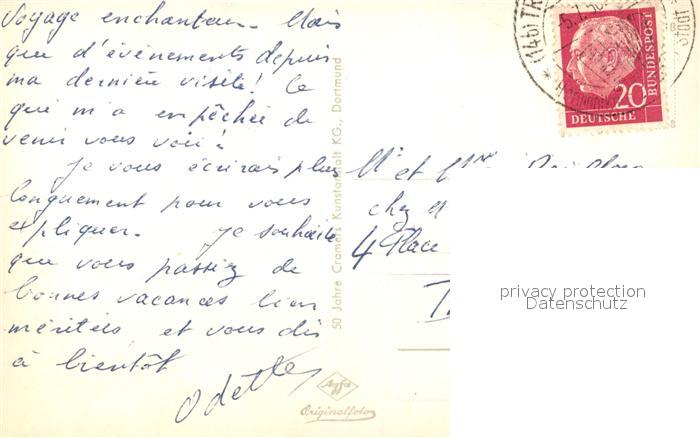 Voyage enchanteur. Mais
que d'évènements depuis
ma dernière visite! Ce
qui m'a empêchée de
venir vous voir!
Je vous écrirais plus
longuement pour vous
expliquer. Je souhaite
que vous passiez de
bonnes vacances bien
méritées et vous dis
à bientôt
Odette
50 Jahre Cramers Kunstanstalt KG., Dortmund
Agfa
Originalfoto
20
DEUTSCHE
BUNDESPOST
Mr et Mme
chez
4 Place
privacy protection
Datenschutz